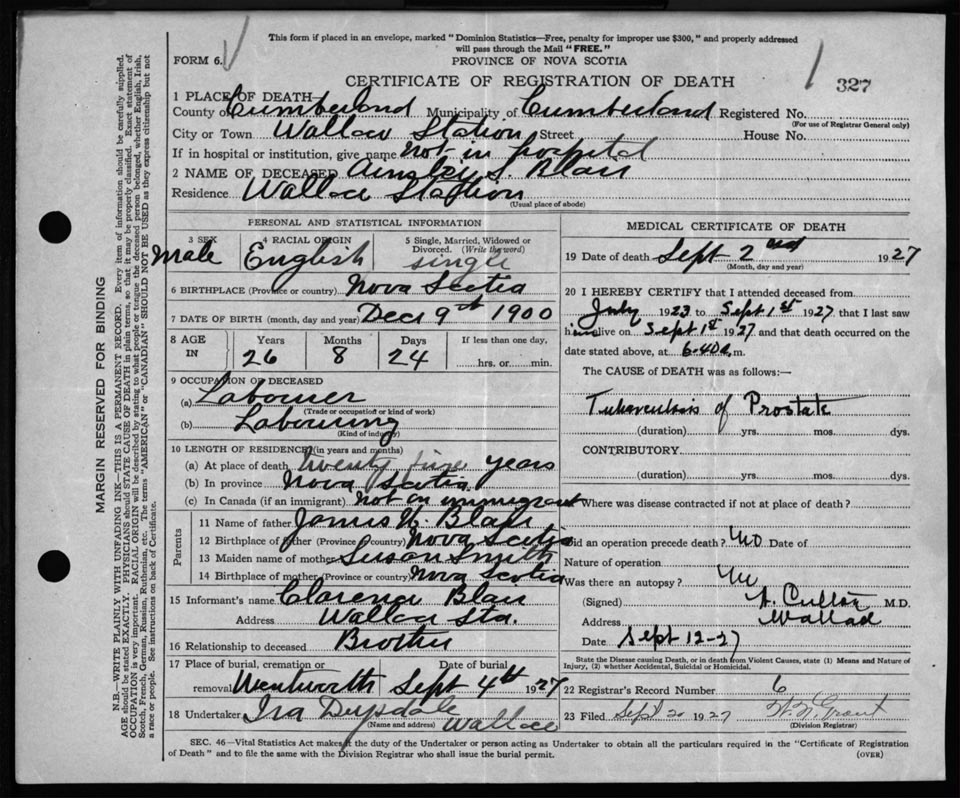 This form if placed in an envelope, marked "Dominion Statistics—Free, penalty for improper use $300," and properly addressed
will pass through the Mail "FREE."
FORM 6.
PROVINCE OF NOVA SCOTIA
CERTIFICATE OF REGISTRATION OF DEATH
327
1 PLACE OF DEATH—
County of Cumberland Municipality of Cumberland Registered No.
(For use of Registrar General only)
City or Town Wallace Station Street House No.
If in hospital or institution, give name not in hospital
2 NAME OF DECEASED Ainsley S. Blair
Residence Wallace Station
(Usual place of abode)
PERSONAL AND STATISTICAL INFORMATION
3 SEX 4 RACIAL ORIGIN 5 Single, Married, Widowed or Divorced. (Write the word)
Male English single
6 BIRTHPLACE (Province or country) Nova Scotia
7 DATE OF BIRTH (month, day and year) Dec 9th 1900
8 AGE IN Years Months Days If less than one day,
26 8 24 hrs. or min.
9 OCCUPATION OF DECEASED
(a) Labourer
(Trade or occupation or kind of work)
(b) Labouring
(Kind of industry)
10 LENGTH OF RESIDENCE (in years and months)
(a) At place of death twenty five years
(b) In province Nova Scotia
(c) In Canada (if an immigrant) not an immigrant
Parents
11 Name of father James W. Blair
12 Birthplace of father (Province or country) Nova Scotia
13 Maiden name of mother Susan Smith
14 Birthplace of mother (Province or country) Nova Scotia
15 Informant's name Clarence Blair
Address Wallace Sta.
16 Relationship to deceased Brother
17 Place of burial, cremation or removal Date of burial
Wentworth Sept 4th 1927
18 Undertaker Ira Drysdale Wallace
(Name and address)
MEDICAL CERTIFICATE OF DEATH
19 Date of death Sept 2nd 1927
(Month, day and year)
20 I HEREBY CERTIFY that I attended deceased from
July 1923 to Sept 1st 1927 that I last saw
him alive on Sept 1st 1927 and that death occurred on the
date stated above, at 6.40 a.m.
The CAUSE of DEATH was as follows:—
Tuberculosis of Prostate
(duration) yrs. mos. dys.
CONTRIBUTORY
(duration) yrs. mos. dys.
Where was disease contracted if not at place of death?
Did an operation precede death? No Date of
Nature of operation
Was there an autopsy? No
(Signed) M.D.
Address Wallace
Date Sept 12-27
State the Disease causing Death, or in death from Violent Causes, state (1) Means and Nature of
Injury, (2) whether Accidental, Suicidal or Homicidal.
22 Registrar's Record Number 6
23 Filed Sept 20 1927 Grant
(Division Registrar)
SEC. 46—Vital Statistics Act makes it the duty of the Undertaker or person acting as Undertaker to obtain all the particulars required in the "Certificate of Registration
of Death" and to file the same with the Division Registrar who shall issue the burial permit. (OVER)
MARGIN RESERVED FOR BINDING
N.B.—WRITE PLAINLY WITH UNFADING INK—THIS IS A PERMANENT RECORD. Every item of information should be carefully supplied.
AGE should be stated EXACTLY. PHYSICIANS should STATE CAUSE OF DEATH in plain terms, so that it may be properly classified. Exact statement of
OCCUPATION is very important. RACIAL ORIGIN will be described by stating to what people or tongue the deceased person belonged, whether English, Irish,
Scotch, French, German, Russian, Ruthenian, etc. The terms "AMERICAN" or "CANADIAN" SHOULD NOT BE USED as they express citizenship but not
a race or people. See instructions on back of Certificate.